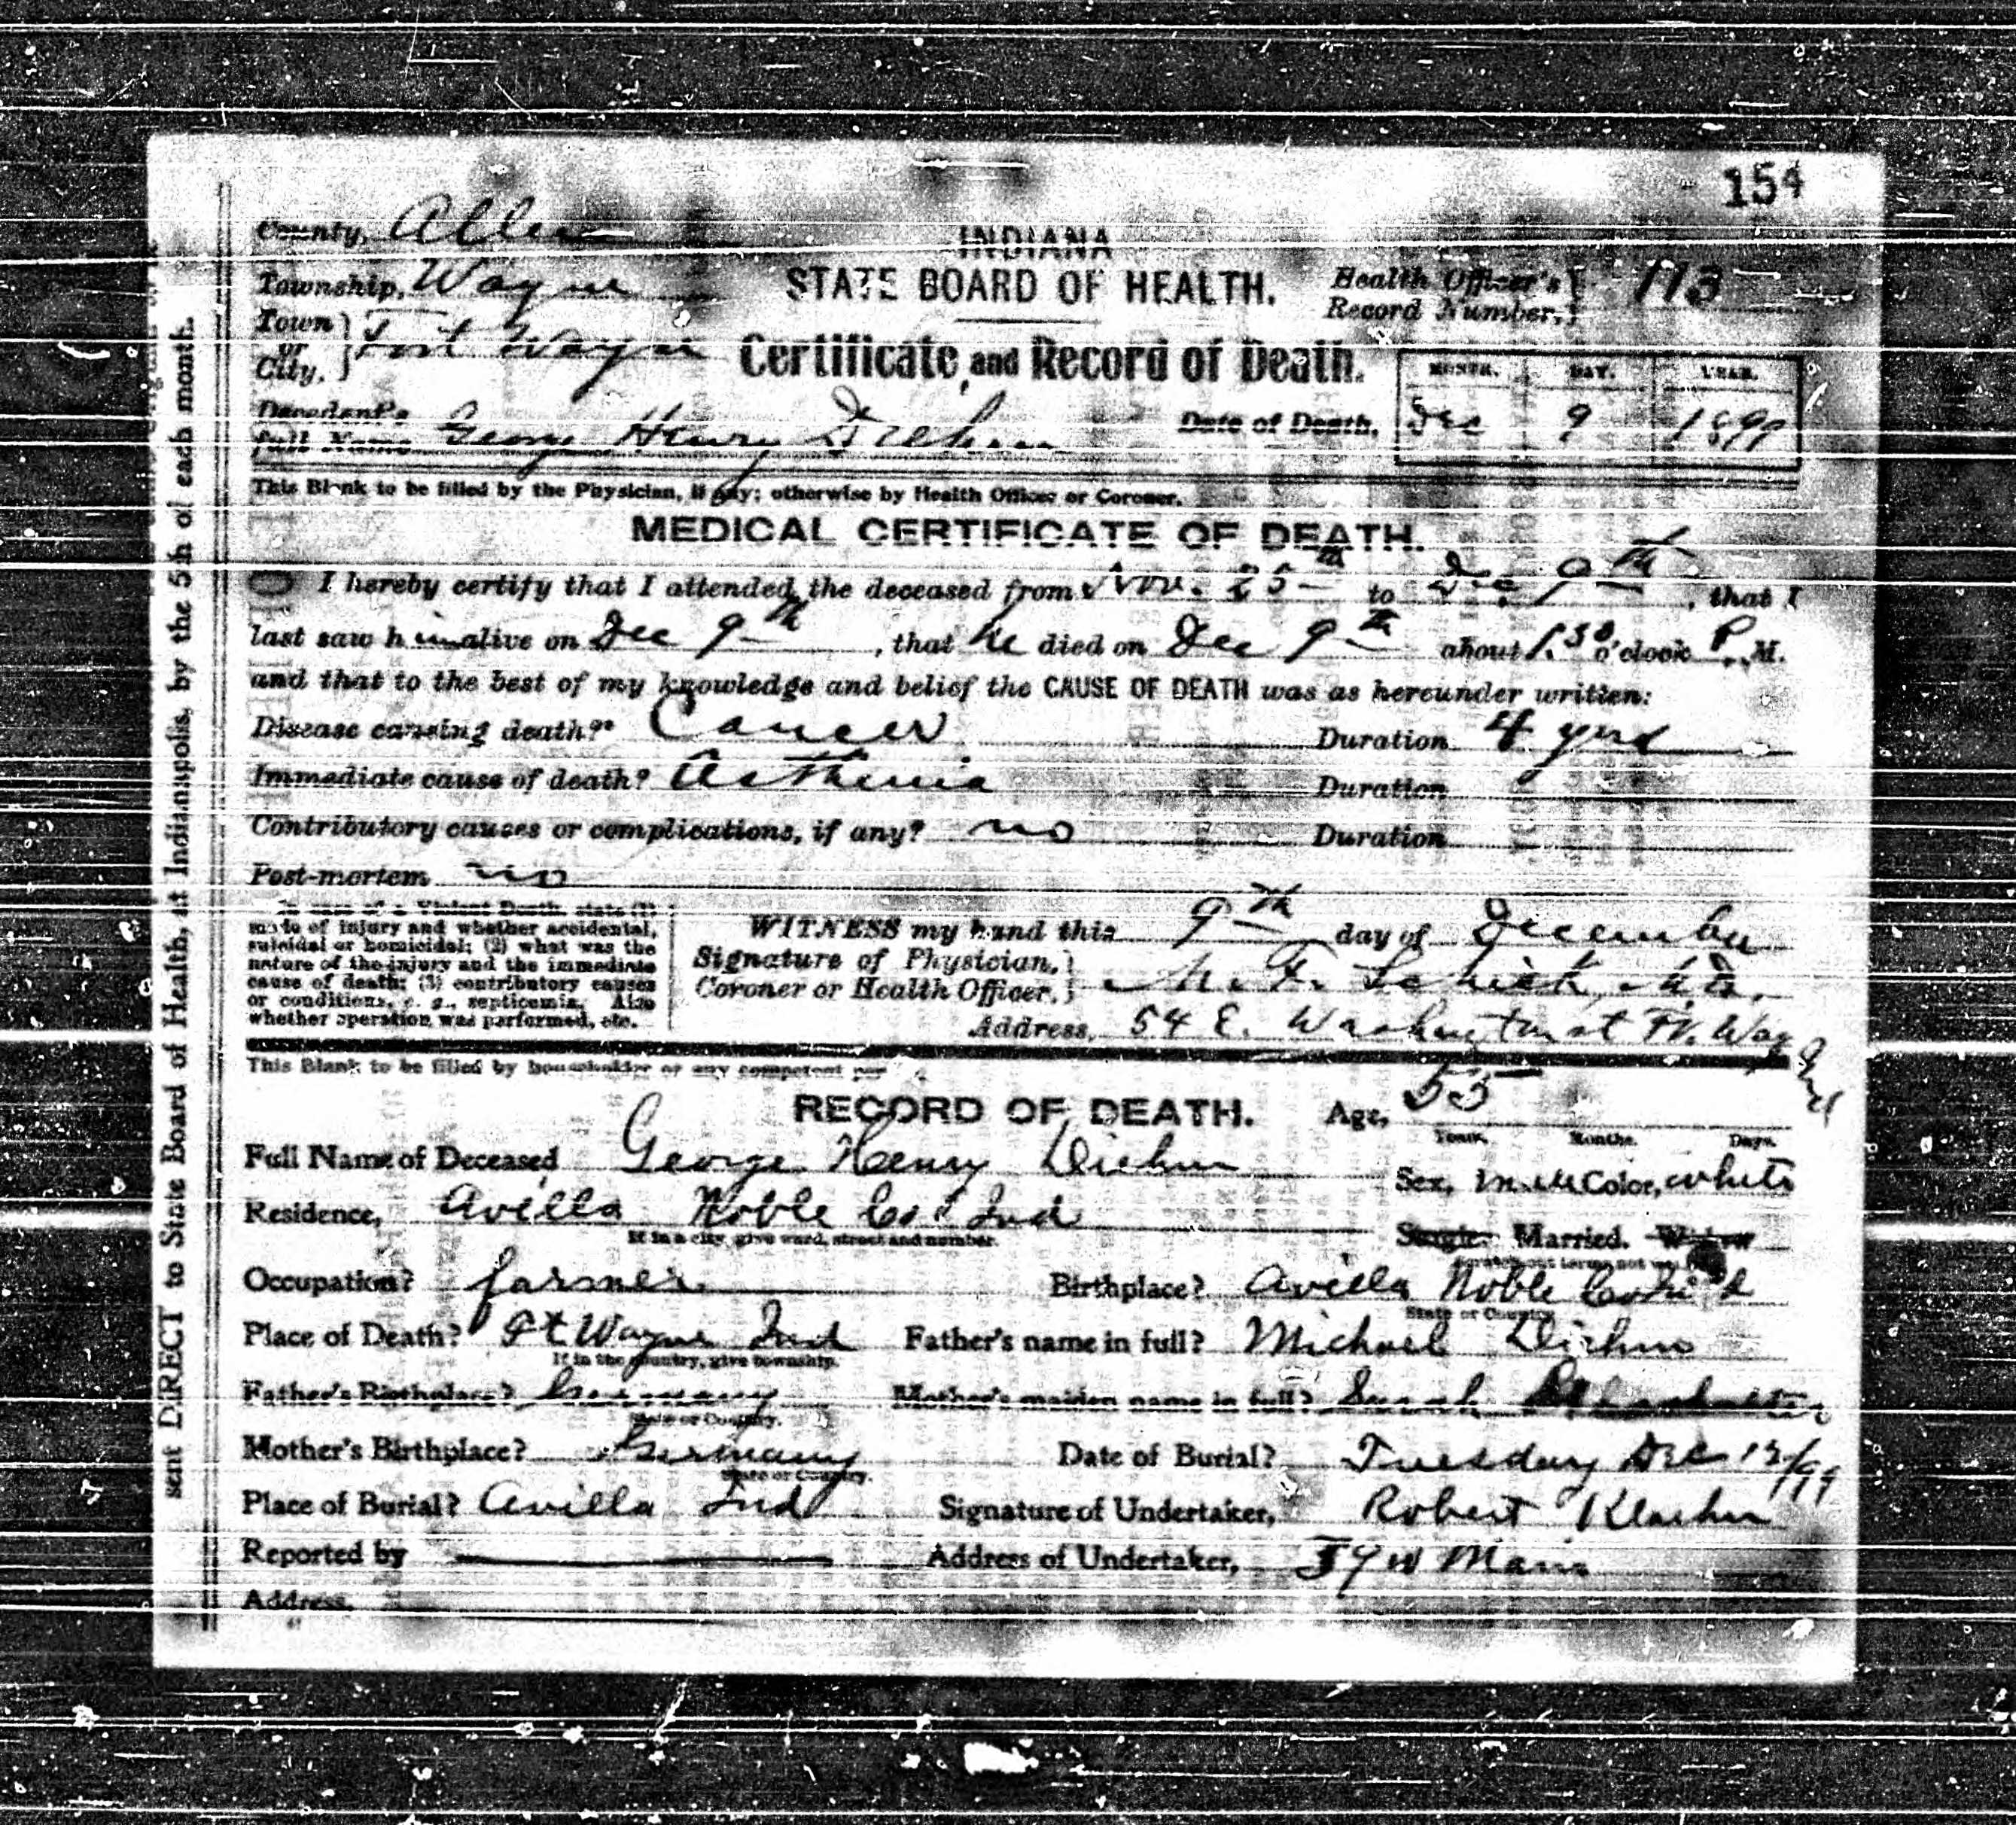 154
County, Allen
INDIANA
Township, Wayne
STATE BOARD OF HEALTH.
Health Officer's Record Number, 113
Town or City, Fort Wayne
Certificate and Record of Death.
MONTH. DAY. YEAR.
Decedent's full Name George Henry Diehm
Date of Death, Dec 9 1899
This Blank to be filled by the Physician, if any; otherwise by Health Officer or Coroner.
MEDICAL CERTIFICATE OF DEATH.
I hereby certify that I attended the deceased from Nov. 25th to Dec 9th, that I
last saw him alive on Dec 9th, that he died on Dec 9th about 1.30 o'clock P. M.
and that to the best of my knowledge and belief the CAUSE OF DEATH was as hereunder written:
Disease causing death? Cancer Duration 4 yrs
Immediate cause of death? Asthenia Duration
Contributory causes or complications, if any? no Duration
Post-mortem no
In case of a Violent Death, state (1)
mode of injury and whether accidental,
suicidal or homicidal; (2) what was the
nature of the injury and the immediate
cause of death; (3) contributory causes
or conditions, e. g., septicemia. Also
whether operation was performed, etc.
WITNESS my hand this 9th day of December
Signature of Physician, Coroner or Health Officer, M. F. Schick M.D.
Address, 54 E. Washington st Ft. Wayne
This Blank to be filled by householder or any competent per
RECORD OF DEATH.
Age, 55
Years. Months. Days.
Full Name of Deceased George Henry Diehm
Sex, male Color, white
Residence, Avilla Noble Co Ind
If in a city, give ward, street and number.
Single. Married. Widow
Scratch out terms not
Occupation? farmer
Birthplace? Avilla Noble Co Ind
State or Country.
Place of Death? Ft Wayne Ind
If in the country, give township.
Father's name in full? Michael Diehm
Father's Birthplace? Germany
State or Country.
Mother's maiden name in full? Sarah
Mother's Birthplace? Germany
State or Country.
Date of Burial? Tuesday Dec 12/99
Place of Burial? Avilla Ind
Signature of Undertaker, Robert Klaehn
Reported by
Address of Undertaker, 59 W Main
Address,
sent DIRECT to State Board of Health, at Indianapolis, by the 5th of each month.